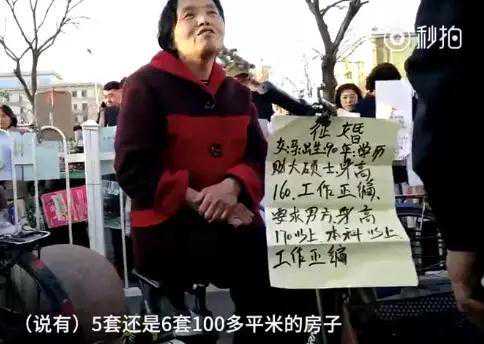 秒拍
征婚
女亲出生90年:学历
财大硕士身高
160.工作正编、
要求男方身高
170以上本科以上
工作正编
（说有）5套还是6套100多平米的房子